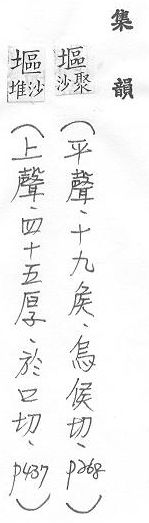 集韻
塸聚沙（平聲、十九侯、烏侯切、p268）
塸沙堆（上聲、四十五厚、於口切、p437）